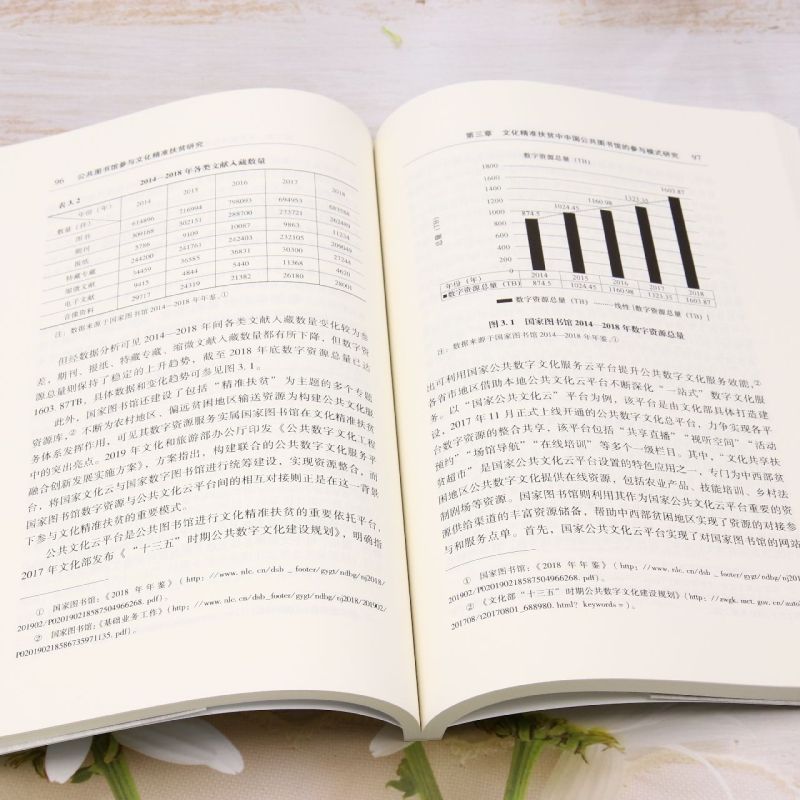 96 公共图书馆参与文化精准扶贫研究
表3.2 2014—2018年各类文献入藏数量
年份(年) 2014 2015 2016 2017 2018
数量(件)
图书 614896 716994 798093 694953
期刊 309168 302151 288700 273721 262489
报纸 5786 9109 10087 9863 11234
特藏专藏 244200 241761 242403 232105 209049
缩微文献 34459 36385 36831 30300 23248
电子文献 9415 4844 5440 11368 4620
音像资料 29717 24319 21382 26180 28001
注:数据来源于国家图书馆2014—2018年年鉴。①
但经数据分析可见2014—2018年间各类文献入藏数量变化较为参
差,期刊、报纸、特藏专藏、缩微文献入藏数量都有所下降,但数字资
源总量则保持了稳定的上升趋势,截至2018年底数字资源总量已达
1603.87TB,具体数据和变化趋势可参见图3.1。
此外,国家图书馆还建设了包括“精准扶贫”为主题的多个专题
资源库,②不断为农村地区、偏远贫困地区输送资源为构建公共文化服
务体系发挥作用,可见其数字资源服务实属国家图书馆在文化精准扶贫
中的突出亮点。2019年文化和旅游部办公厅印发《公共数字文化工程
融合创新发展实施方案》,方案指出,构建联合的公共数字文化服务平
台,将国家文化云与国家数字图书馆进行统筹建设,实现资源整合,而
国家图书馆数字资源与公共文化云平台间的相互对接则正是在这一背景
下参与文化精准扶贫的重要模式。
公共文化云平台是公共图书馆进行文化精准扶贫的重要依托平台,
2017年文化部发布《“十三五”时期公共数字文化建设规划》,明确指
① 国家图书馆:《2018年年鉴》(http://www.nlc.cn/dsb_footer/gygt/ndbg/nj2018/
201902/P020190218587504966268.pdf)。
② 国家图书馆:《基础业务工作》(http://www.nlc.cn/dsb_footer/gygt/ndbg/nj2018/201902/
P020190218586735971135.pdf)。
第三章 文化精准扶贫中中国公共图书馆的参与模式研究 97
数字资源总量(TB)
1800
1600
1400
1200
1000
800
600
400
200
0
总量(TB)
874.5 1024.45 1160.98 1323.35 1603.87
年份(年) 2014 2015 2016 2017 2018
数字资源总量(TB) 874.5 1024.45 1160.98 1323.35 1603.87
数字资源总量(TB) 线性[数字资源总量(TB)]
图3.1 国家图书馆2014—2018年数字资源总量
注:数据来源于国家图书馆2014—2018年年鉴。①
出可利用国家公共数字文化服务云平台提升公共数字文化服务效能,②
各省市地区借助本地公共文化云平台不断深化“一站式”数字文化服
务。以“国家公共文化云”平台为例,该平台是由文化部具体打造建
设,2017年11月正式上线开通的公共数字文化总平台,力争实现各平
台数字资源的整合共享,该平台包括“共享直播”“视听空间”“活动
预约”“场馆导航”“在线培训”等多个一级栏目。其中,“文化共享扶
贫超市”是国家公共文化云平台设置的特色应用之一,专门为中西部贫
困地区公共数字文化提供在线资源,包括农业产品、技能培训、乡村法
制剧场等资源。国家图书馆则利用其作为国家公共文化云平台重要的资
源供给渠道的丰富资源储备,帮助中西部贫困地区实现了资源的对接参
与和服务点单。首先,国家公共文化云平台实现了对国家图书馆的网站
① 国家图书馆:《2018年年鉴》(http://www.nlc.cn/dsb_footer/gygt/ndbg/nj2018/
201902/P020190218587504966268.pdf)。
② 《文化部“十三五”时期公共数字文化建设规划》(http://zwgk.mct.gov.cn/auto255/
201708/t20170801_688980.html?keywords=)。